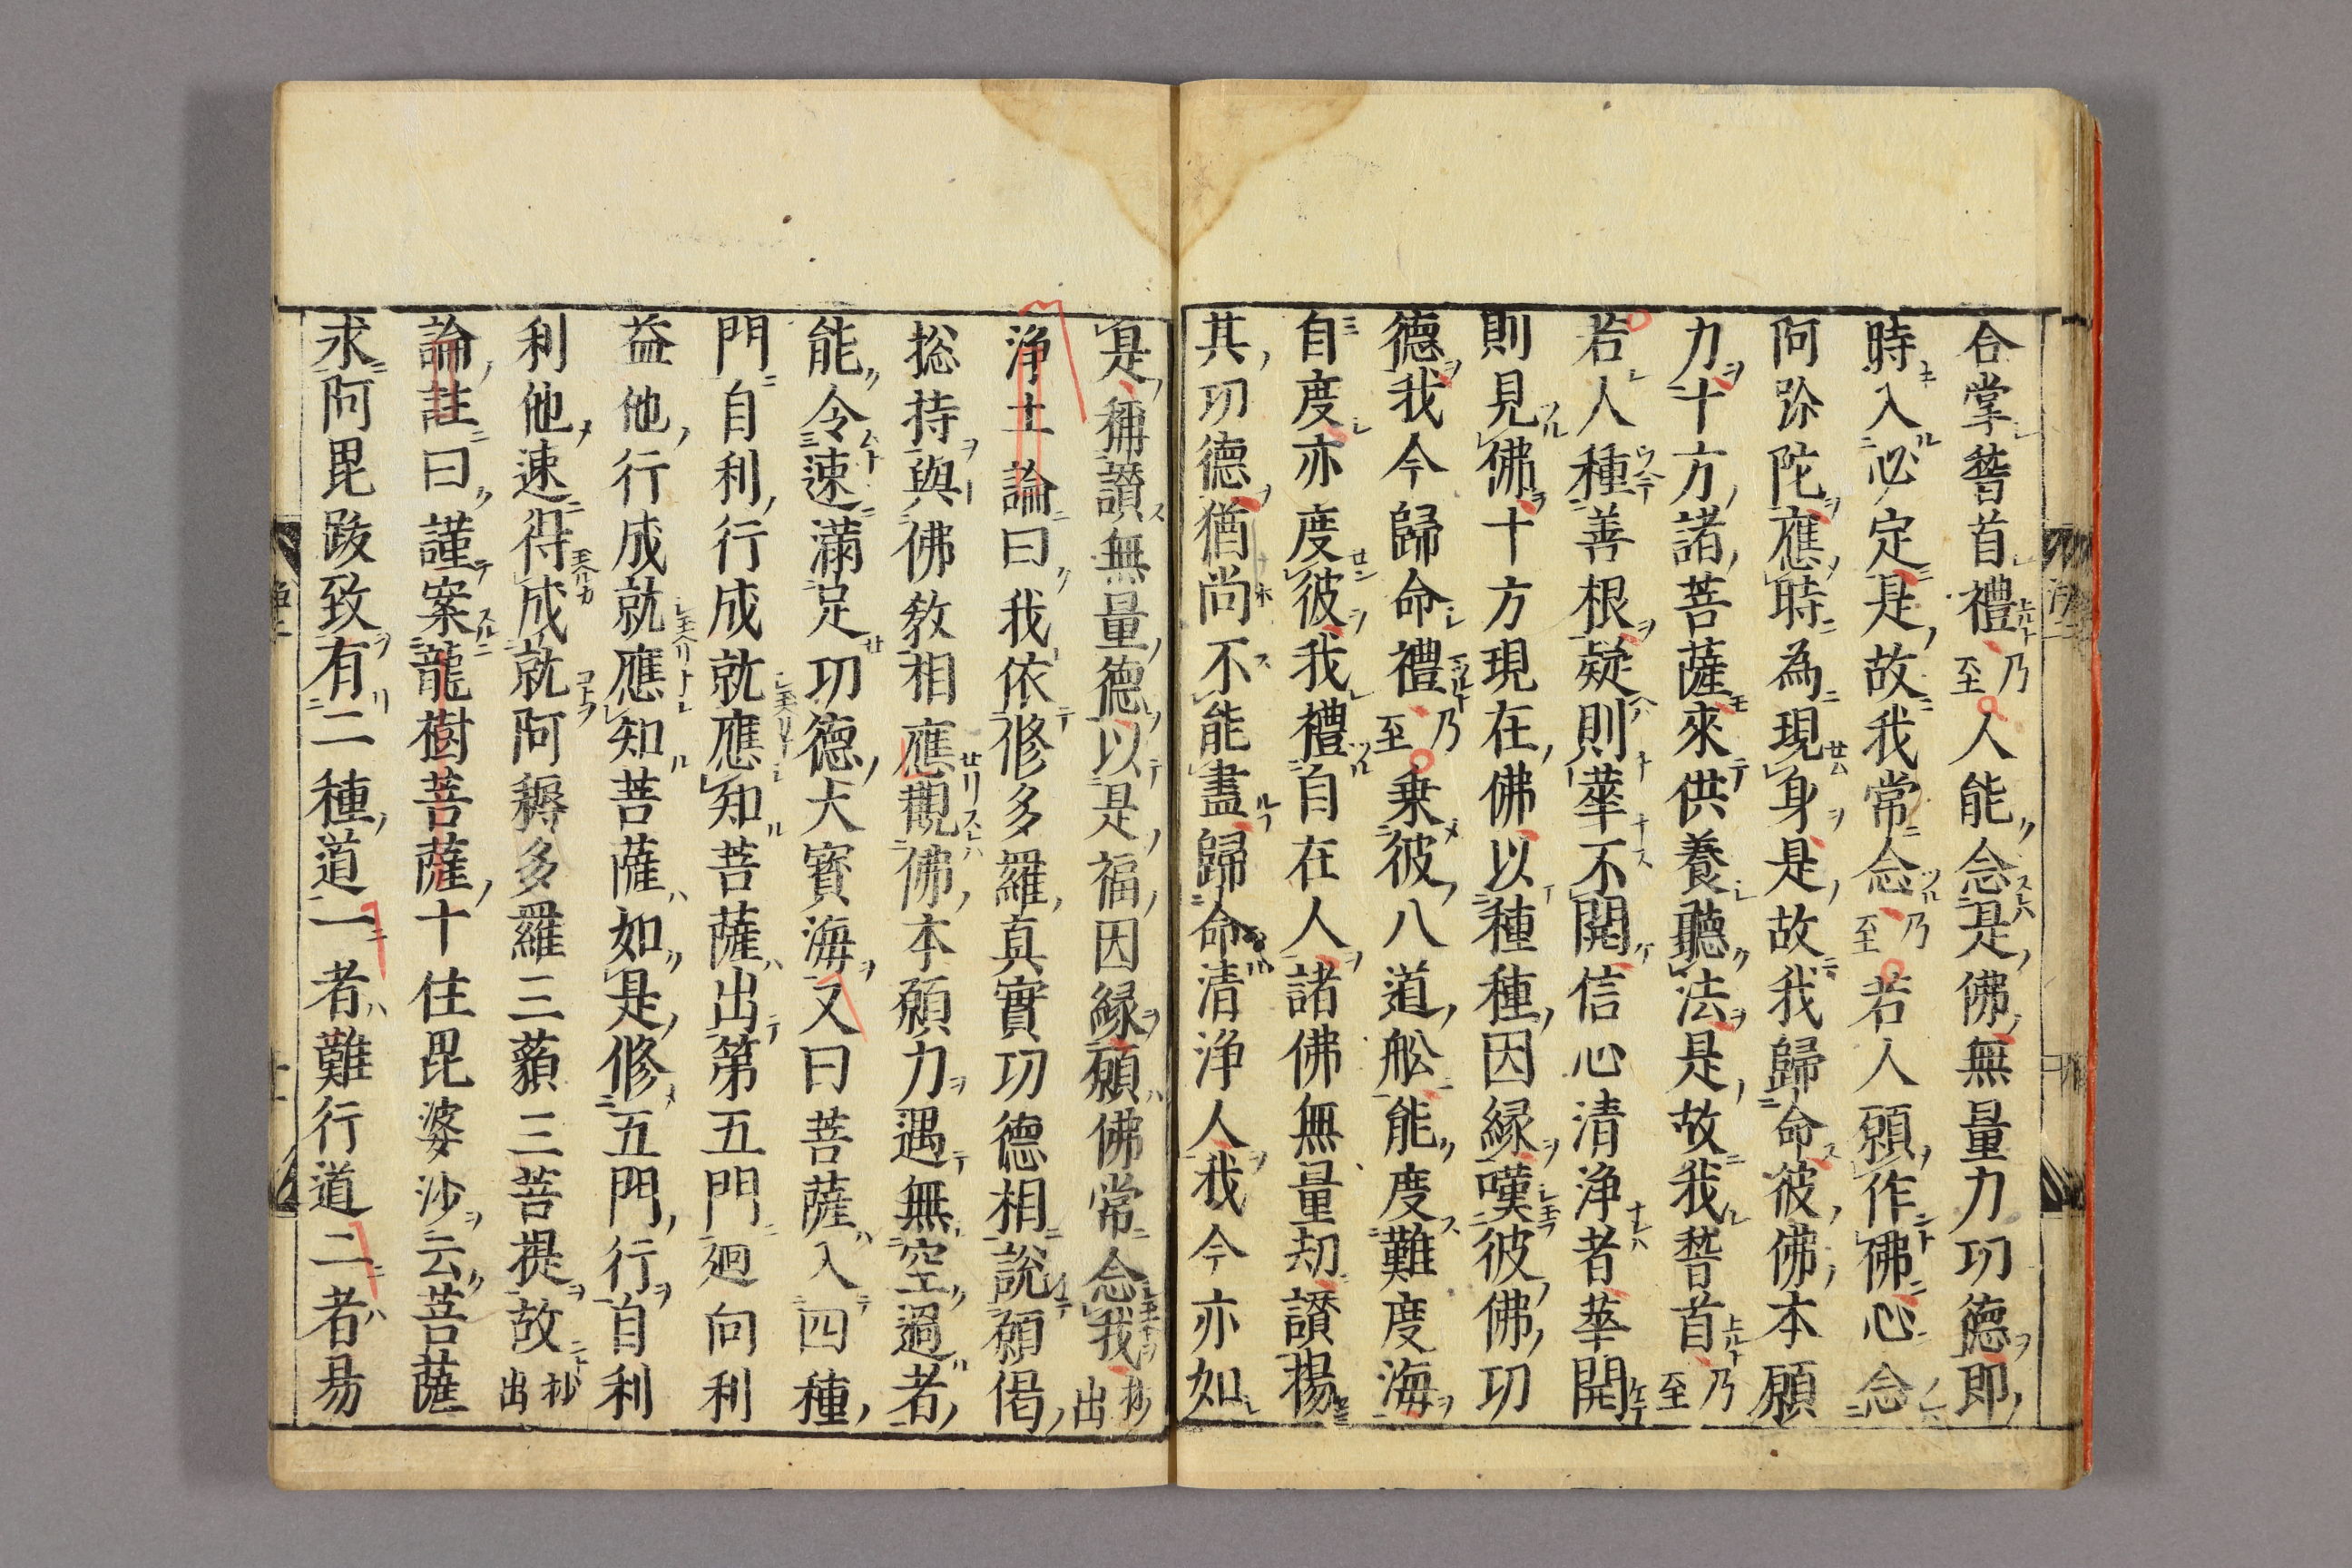 合掌䭬首禮乃至人能念是佛無量力功德即
時入必定是故我常念乃至若人願作佛心念
阿弥陀應時為現身是故我歸命彼佛本願
力十方諸菩薩來供養聽法是故我䭬首乃至
若人種善根疑則華不開信心清淨者華開
則見佛十方現在佛以種種因縁嘆彼佛功
德我今歸命禮乃至乗彼八道舩能度難度海
自度亦度彼我禮自在人諸佛無量劫讃揚
其功德猶尚不能盡歸命清浄人我今亦如
是稱讃無量德以是福因縁願佛常念我抄出
浄土論曰我依修多羅真實功德相説願偈
捴持與佛教相應觀佛本願力遇無空過者
能令速満足功德大寶海又曰菩薩入四種
門自利行成就應知菩薩出第五門廻向利
益他行成就應知菩薩如是修五門行自利
利他速得成就阿耨多羅三藐三菩提故抄出
論註曰謹案龍樹菩薩十住毘婆沙云菩薩
求阿毘跋致有二種道一者難行道二者易